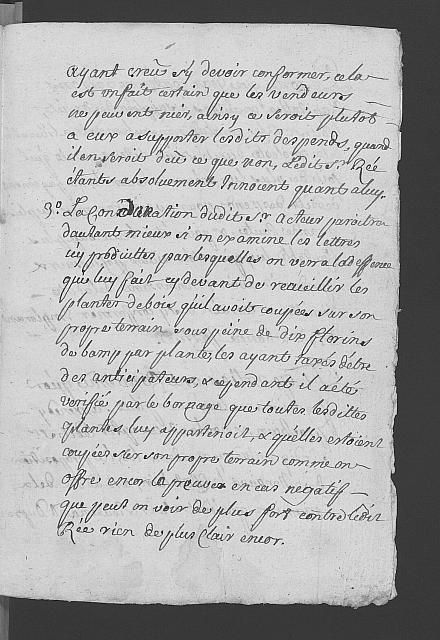 ayant creus s'y devoir conformer, cela
est un fait certain que les vendeurs
ne peuvent nier, ainsy ce seroit plutot
a eux a supporter lesdits despends, quand
il en seroit deus ce que non, Ledit Sr. Rée
étants absolument Innoient quant a luy.
3o. La Condemnation dudit Sr. acteur paroitra
dautant mieux si on examine les lettres
icy produittes par lesquelles on verra la deffence
que luy fait cy devant de recueillir les
plantes de bois qu'il avoit coupées sur son
propre terrain sous peine de dix florins
de bamp par plante, les ayant taxés d'être
des anticipateurs, & cependant il a été
verifié par le bornage que toutes lesdittes
plantes luy appartenoit, & qu'elles estoient
coupées sur son propre terrain comme on
offre encor la preuve en cas negatif
que peut on voir de plus fort contre ledit
Rée rien de plus Clair encor.